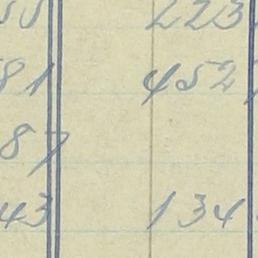 55 223
81 452
87
43 134